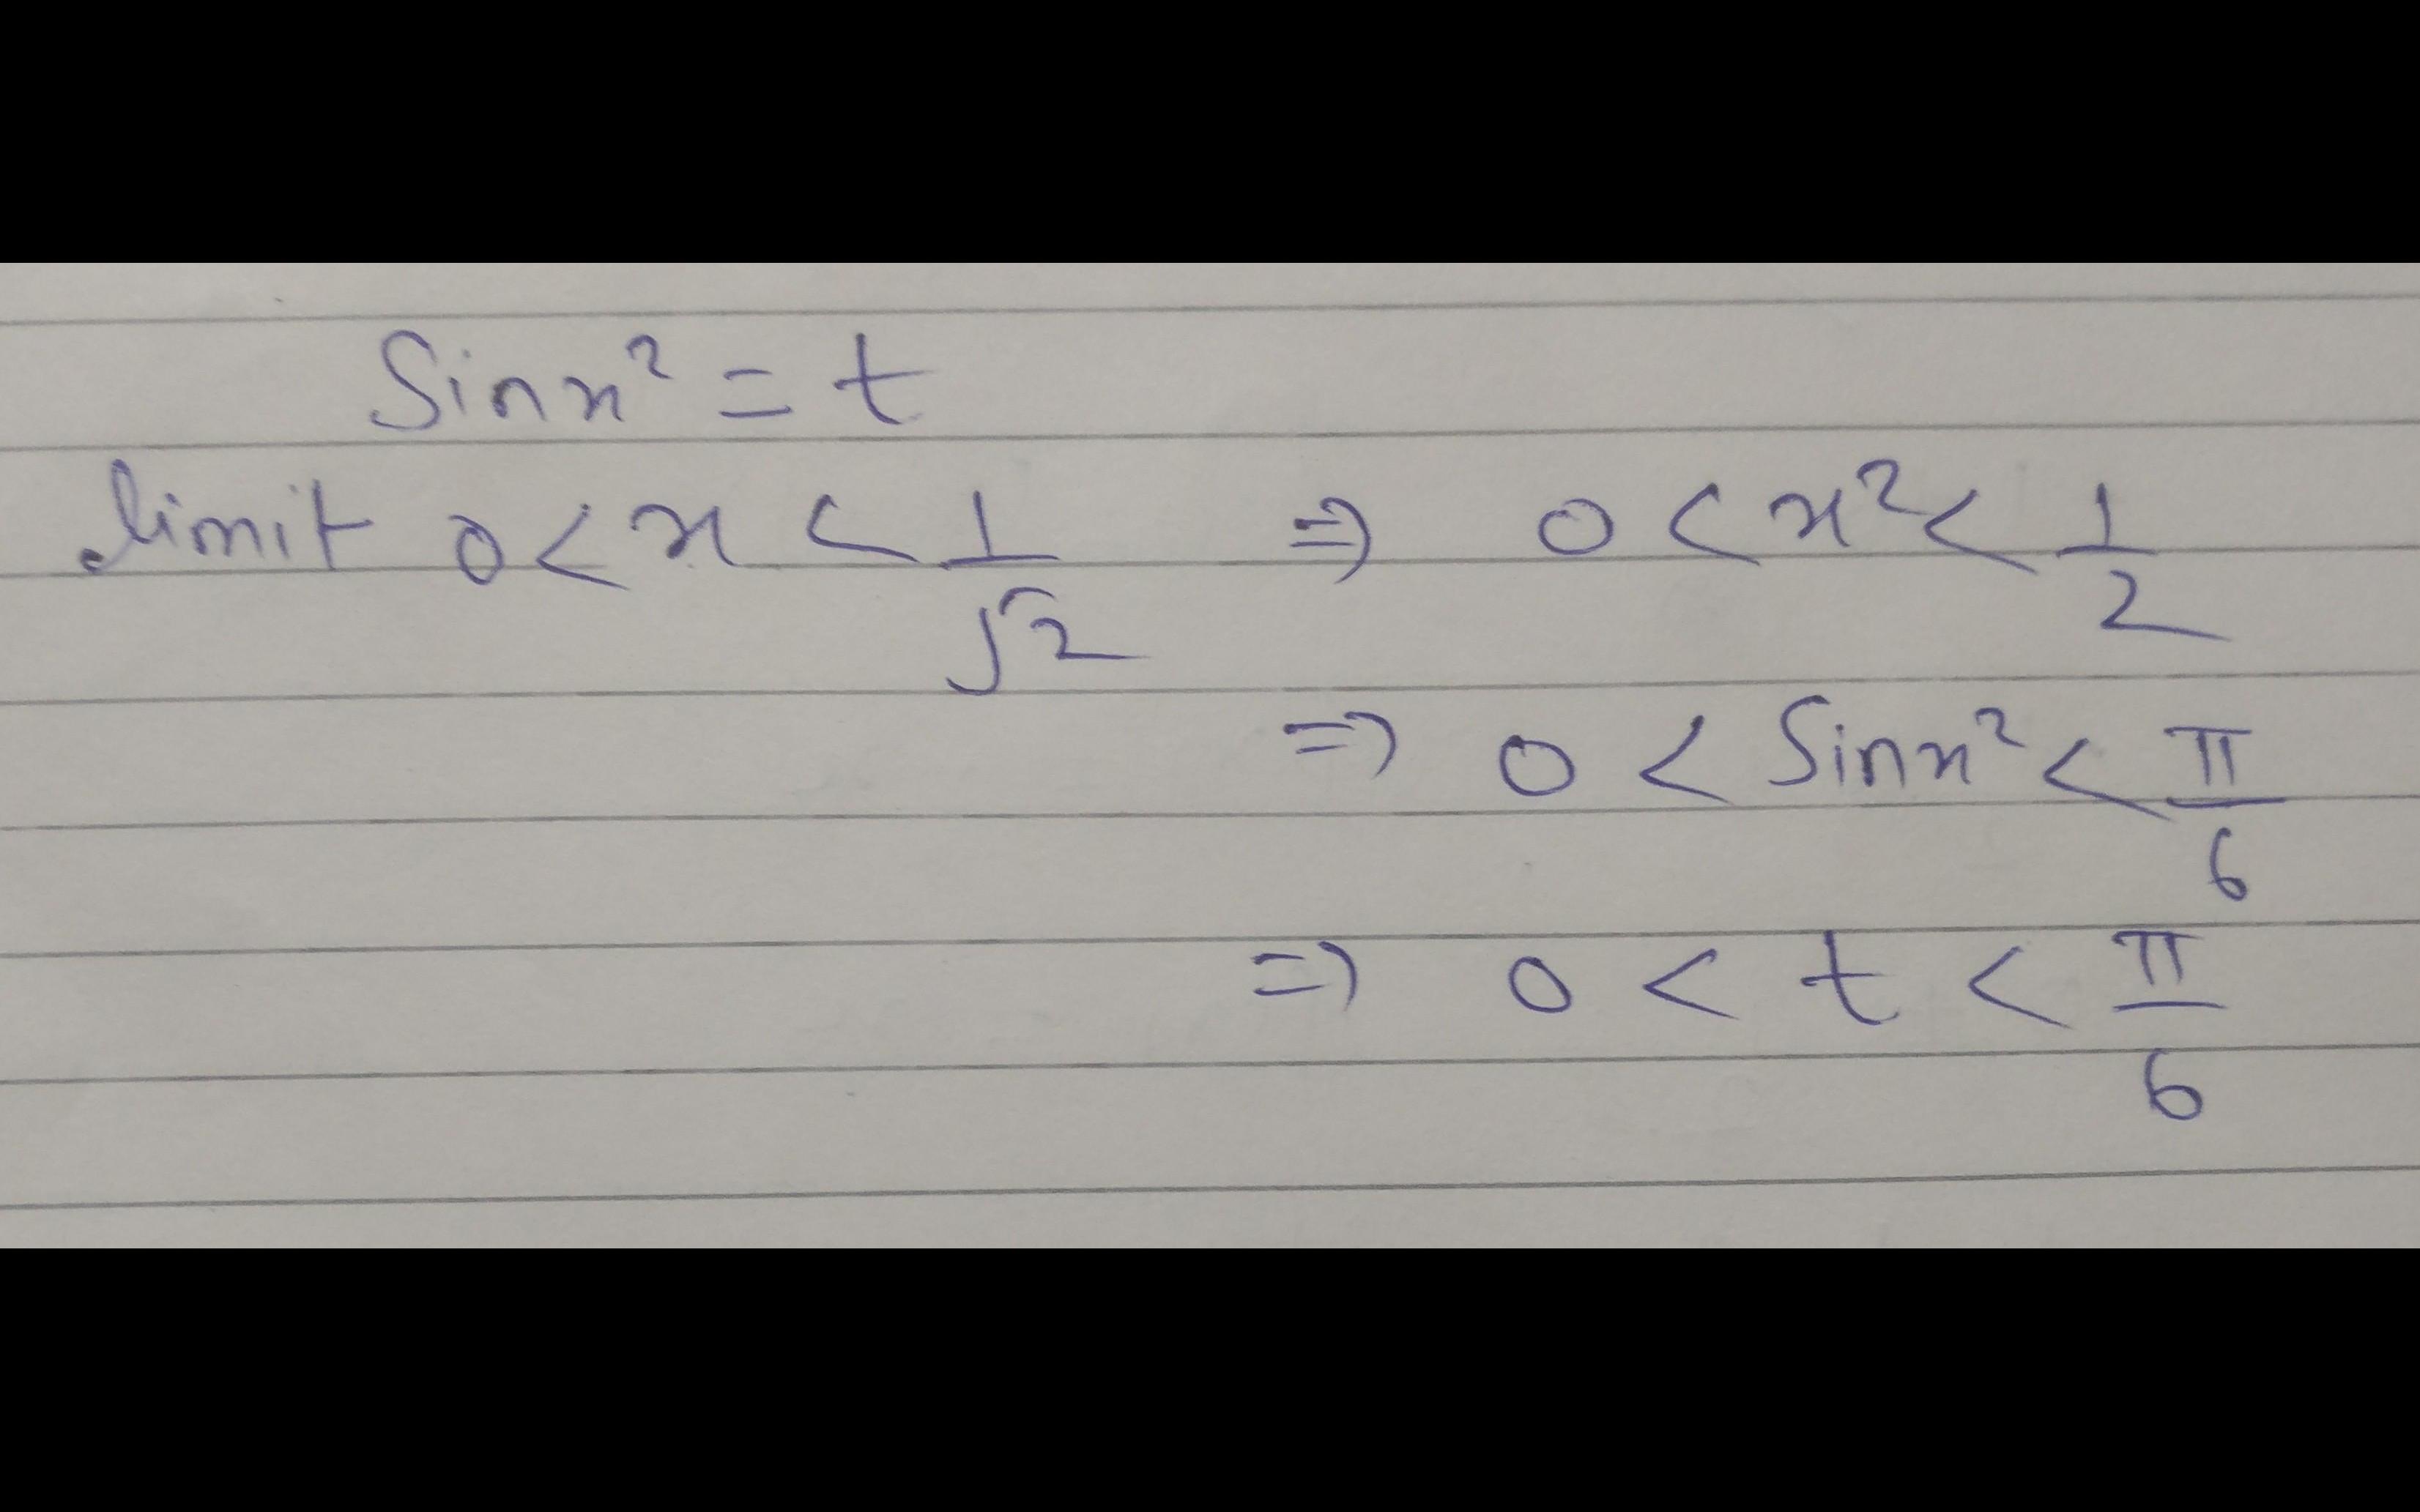 Sinx² = t
limit 0 < x < 1/√2 ⇒ 0 < x² < 1/2
⇒ 0 < Sinx² < π/6
⇒ 0 < t < π/6